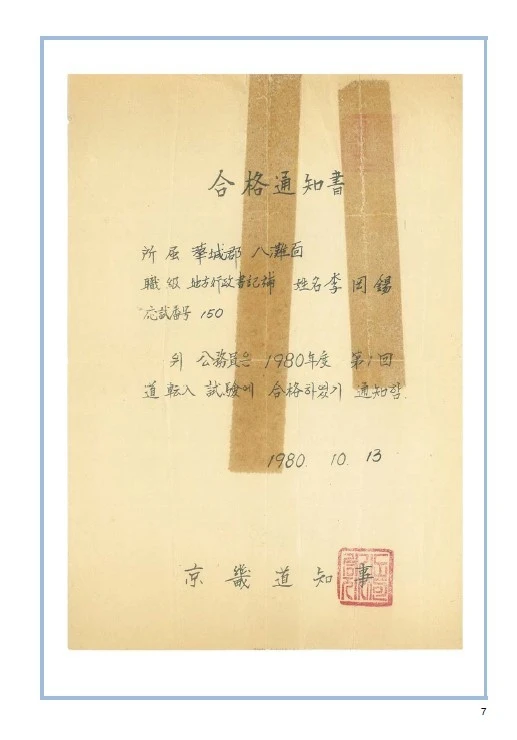 合格通知書
所属 華城郡 八灘面
職級 地方行政書記補 姓名 李岡錫
応試番号 150
위 公務員은 1980年度 第1回
道転入 試験에 合格하였기 通知함.
1980. 10. 13
京畿道知事
7